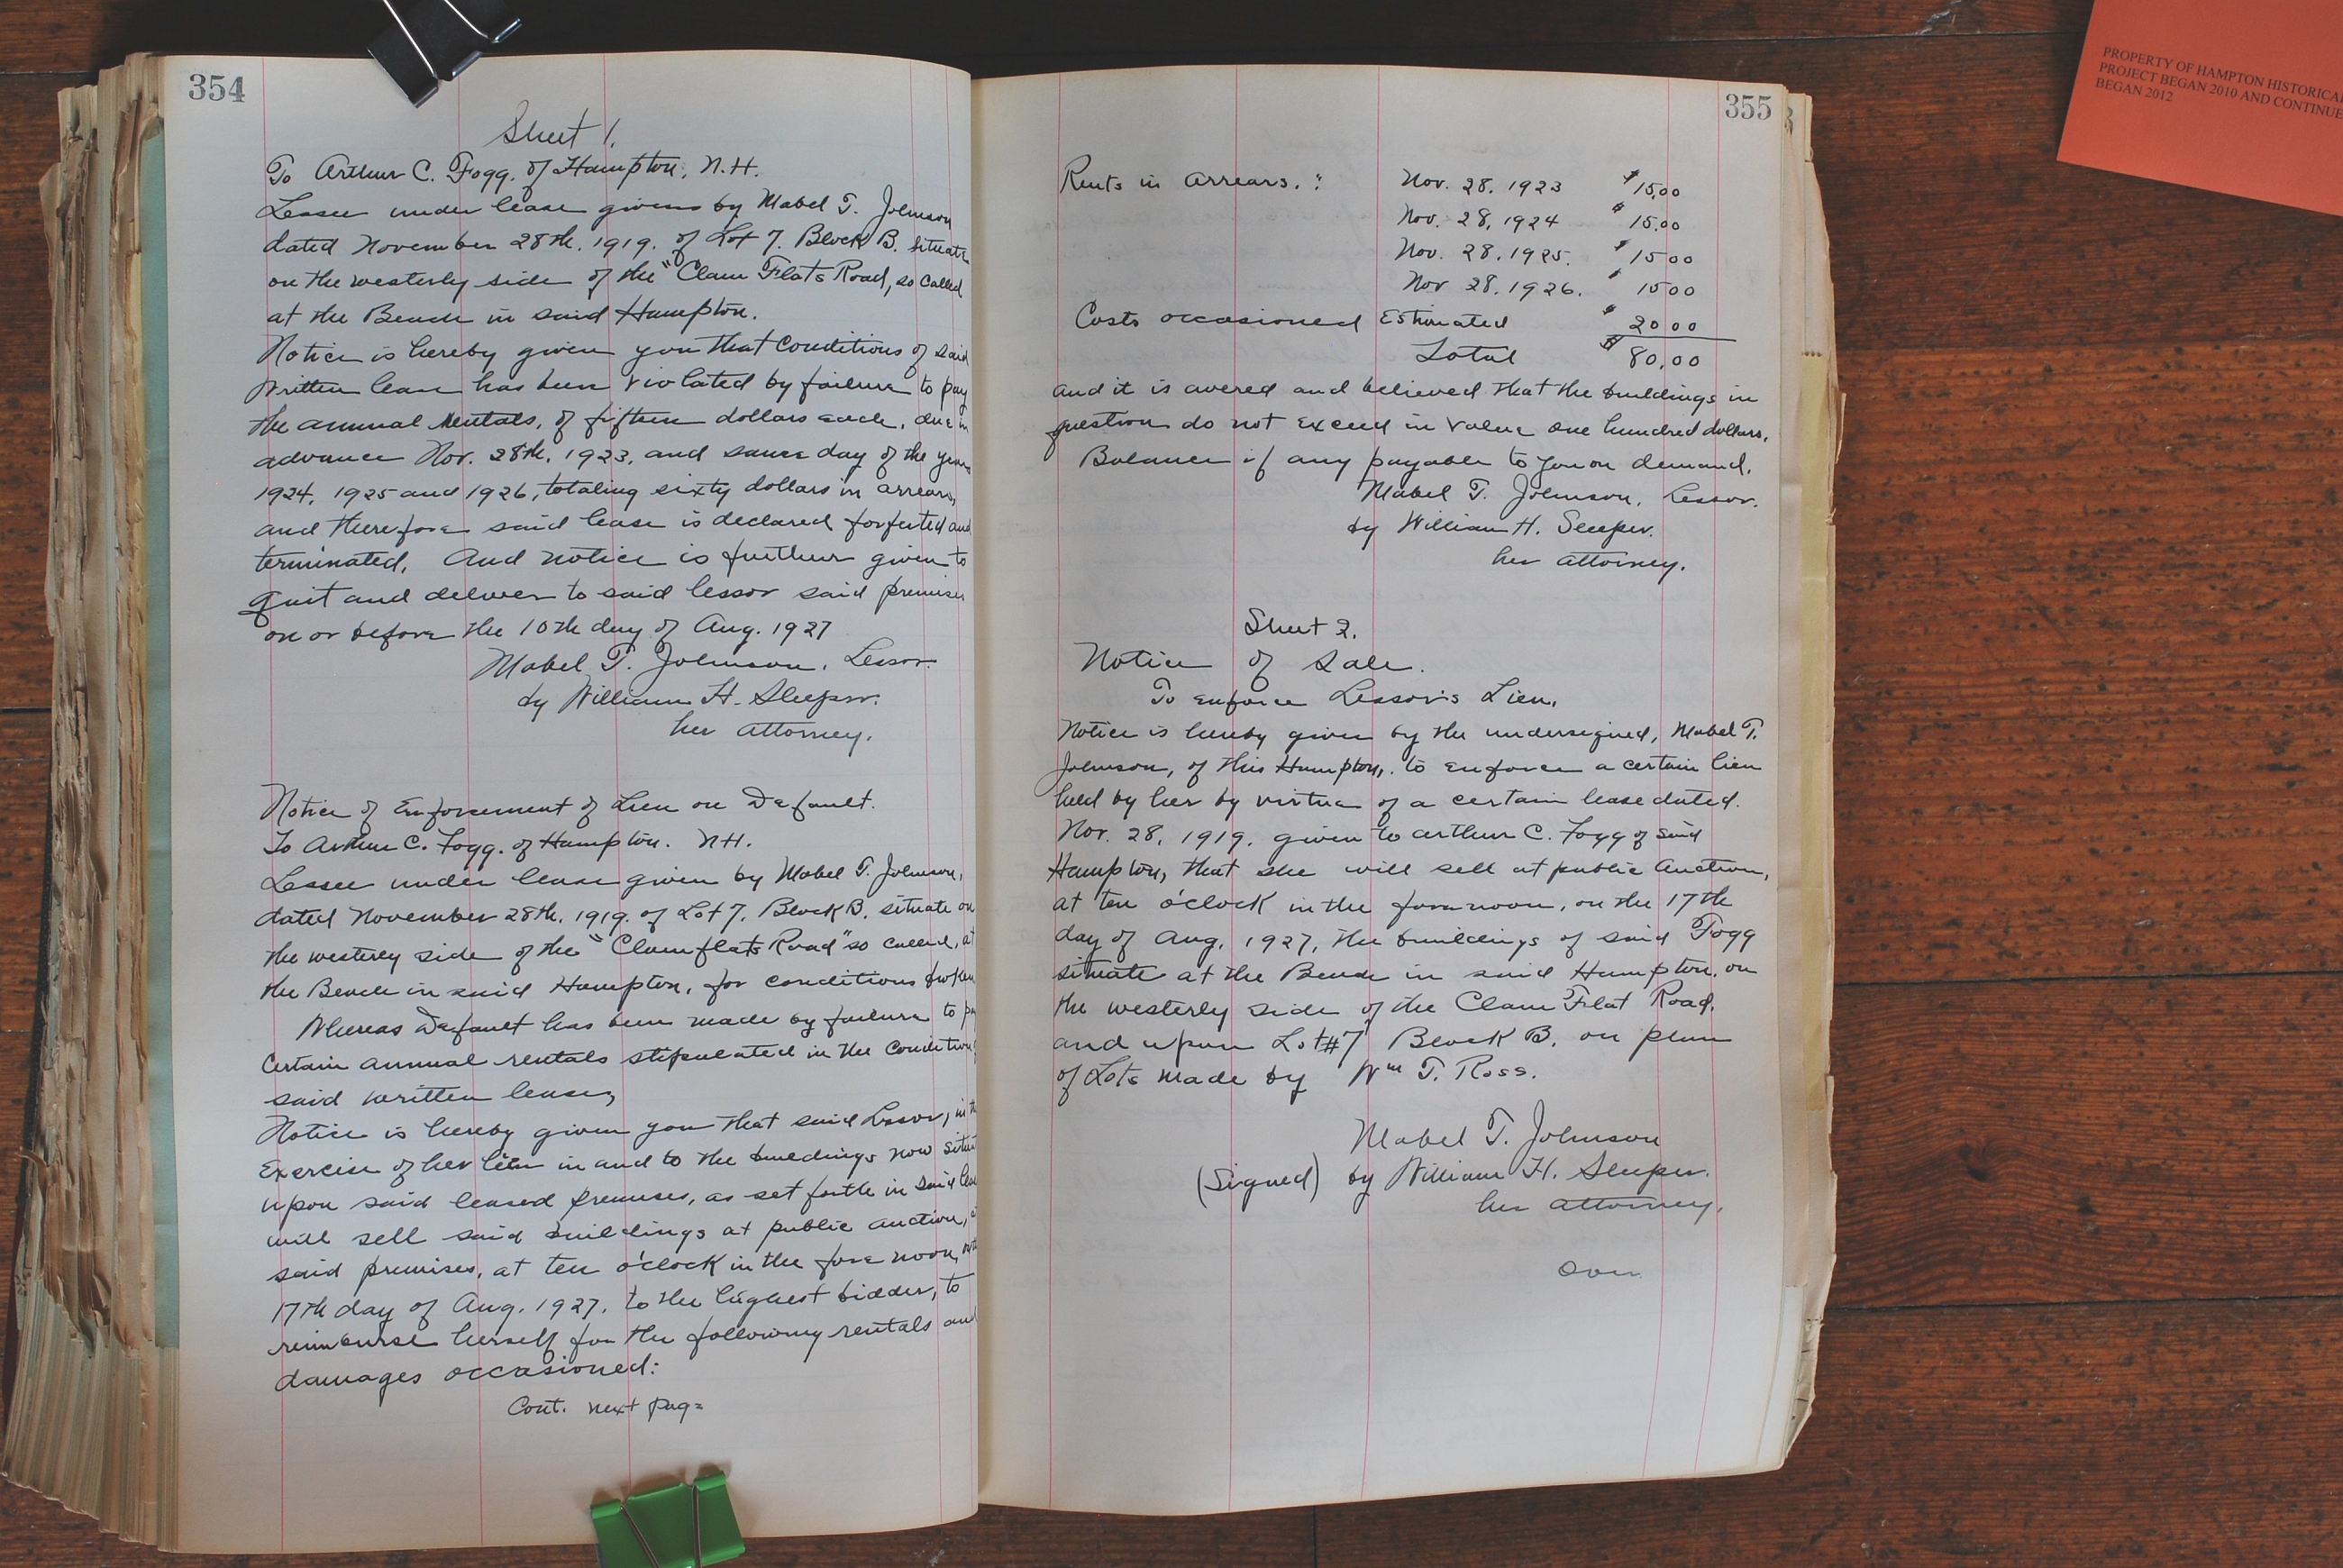 354
Sheet 1.
To Arthur C. Fogg. of Hampton, N.H.
Lessee under lease given by Mabel T. Johnson
dated November 28th. 1919. of Lot 7. Block B. situate
on the westerly side of the "Clam Flats Road, so called
at the Beach in said Hampton.
Notice is hereby given you that conditions of said
written lease has been violated by failure to pay
the annual rentals, of fifteen dollars each, due in
advance Nov. 28th. 1923, and same day of the years
1924, 1925 and 1926, totaling sixty dollars in arrears,
and therefore said lease is declared forfeited and
terminated. And notice is further given to
quit and deliver to said lessor said premises
on or before the 10th day of Aug. 1927
Mabel T. Johnson, Lessor.
by William H. Sleeper.
her attorney.
Notice of Enforcement of Lien on Default.
To Arthur C. Fogg. of Hampton. N.H.
Lessee under lease given by Mabel T. Johnson,
dated November 28th. 1919. of Lot 7. Block B. situate on
the westerly side of the "Clamflats Road" so called, at
the Beach in said Hampton, for conditions broken
Whereas Default has been made by failure to
certain annual rentals stipulated in the condition
said written lease,
Notice is hereby given you that said Lessor, in
Exercise of her lien in and to the buildings now
upon said leased premises, as set forth in said
will sell said buildings at public auction,
said premises, at ten o'clock in the fore noon,
17th day of Aug. 1927. to the highest bidder, to
reimburse herself for the following rentals and
damages occasioned:
Cont. next page
355
Rents in arrears. : Nov. 28. 1923 $ 15.00
Nov. 28, 1924 $ 15.00
Nov. 28. 1925. $ 15 00
Nov 28. 1926. $ 15 00
Costs occasioned Estimated $ 20 00
Total $ 80.00
and it is avered and believed that the buildings in
question do not exceed in value one hundred dollars.
Balance if any payable to you on demand.
Mabel T. Johnson, Lessor.
by William H. Sleeper.
her attorney.
Sheet 2.
Notice of Sale.
To enforce Lessor's Lien.
Notice is hereby given by the undersigned, Mabel T.
Johnson, of this Hampton, to enforce a certain lien
held by her by virtue of a certain lease dated.
Nov. 28, 1919. given to Arthur C. Fogg of said
Hampton, that she will sell at public auction,
at ten o'clock in the forenoon, on the 17th
day of Aug. 1927, the buildings of said Fogg
situate at the Beach in said Hampton, on
the westerly side of the Clam Flat Road.
and upon Lot #7 Block B. on plan
of Lots made by Wm T. Ross.
Mabel T. Johnson
(Signed) by William H. Sleeper.
her attorney.
Over
PROPERTY OF HAMPTON HISTORICAL
PROJECT BEGAN 2010 AND CONTINUE
BEGAN 2012